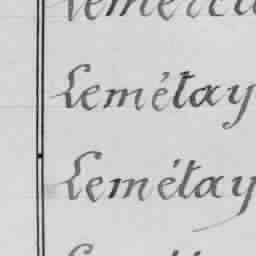 Lemétay
Lemétay